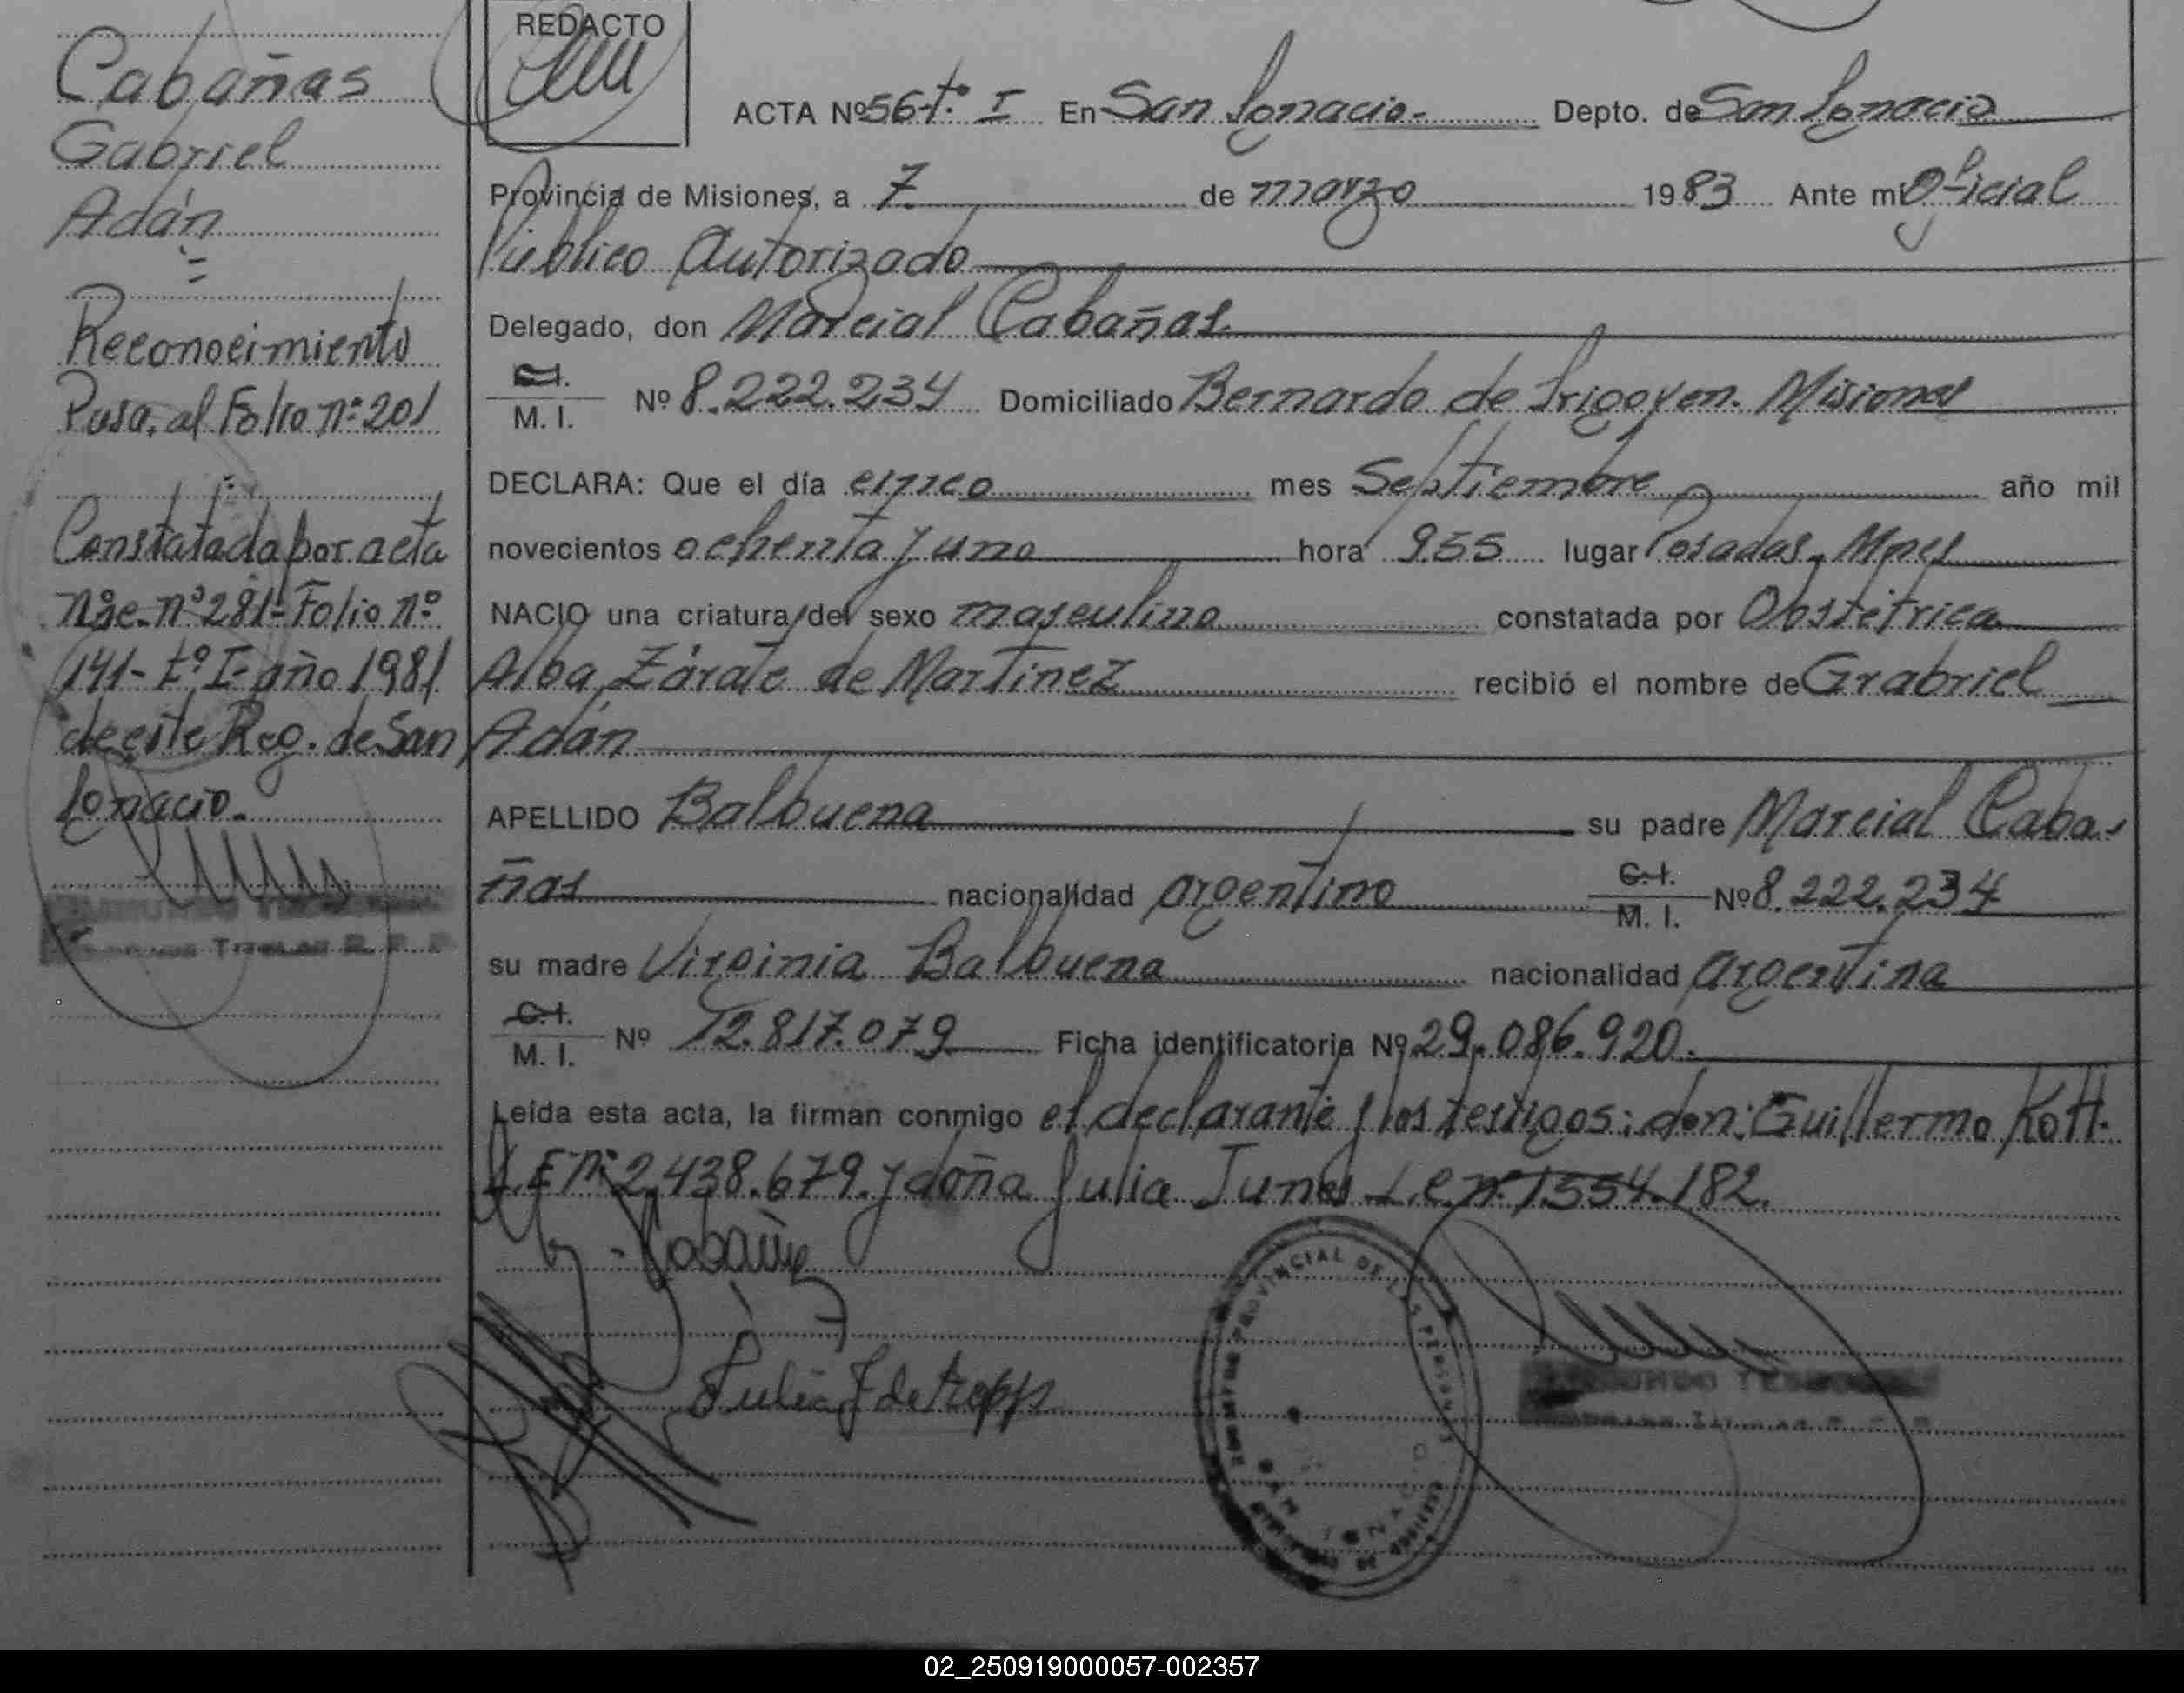 Cabañas
Gabriel
Adán
Reconocimiento
Pasa al Folio nº 201
Constatada por acta
Nac. nº 281- Folio nº
141- tº I- año 1981
de este Reg. de San
Ignacio.-
REDACTO
ACTA Nº 56- tº I En San Ignacio.- Depto. de San Ignacio
Provincia de Misiones, a 7 de marzo 1983 Ante mí Oficial
Público Autorizado
Delegado, don Marcial Cabañas
C.I.
M. I. Nº 8.222.234 Domiciliado Bernardo de Irigoyen. Misiones
DECLARA: Que el día cinco mes Septiembre año mil
novecientos ochenta y uno hora 9.55 lugar Posadas, Mnes
NACIO una criatura del sexo masculino constatada por Obstétrica
Alba Zárate de Martinez recibió el nombre de Grabriel
Adán
APELLIDO Balbuena su padre Marcial Caba-
ñas nacionalidad argentino C.I. M. I. Nº 8.222.234
su madre Virginia Balbuena nacionalidad argentina
C.I.
M. I. Nº 12.817.079 Ficha identificatoria Nº 29.086.920.
Leída esta acta, la firman conmigo el declarante y los testigos: don: Guillermo Kott.
L.E nº 2.438.679. y doña Julia Junes L.e. nº 1554.182.
PROVINCIAL DE LAS PERSONAS
SAN IGNACIO
02_250919000057-002357